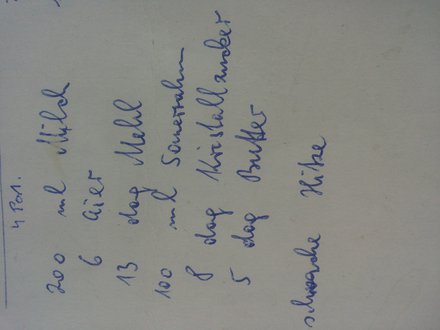 4 Port.
200 ml Milch
6 Eier
13 dag Mehl
100 ml Sauerrahm
8 dag Kristallzucker
5 dag Butter
schwache Hitze